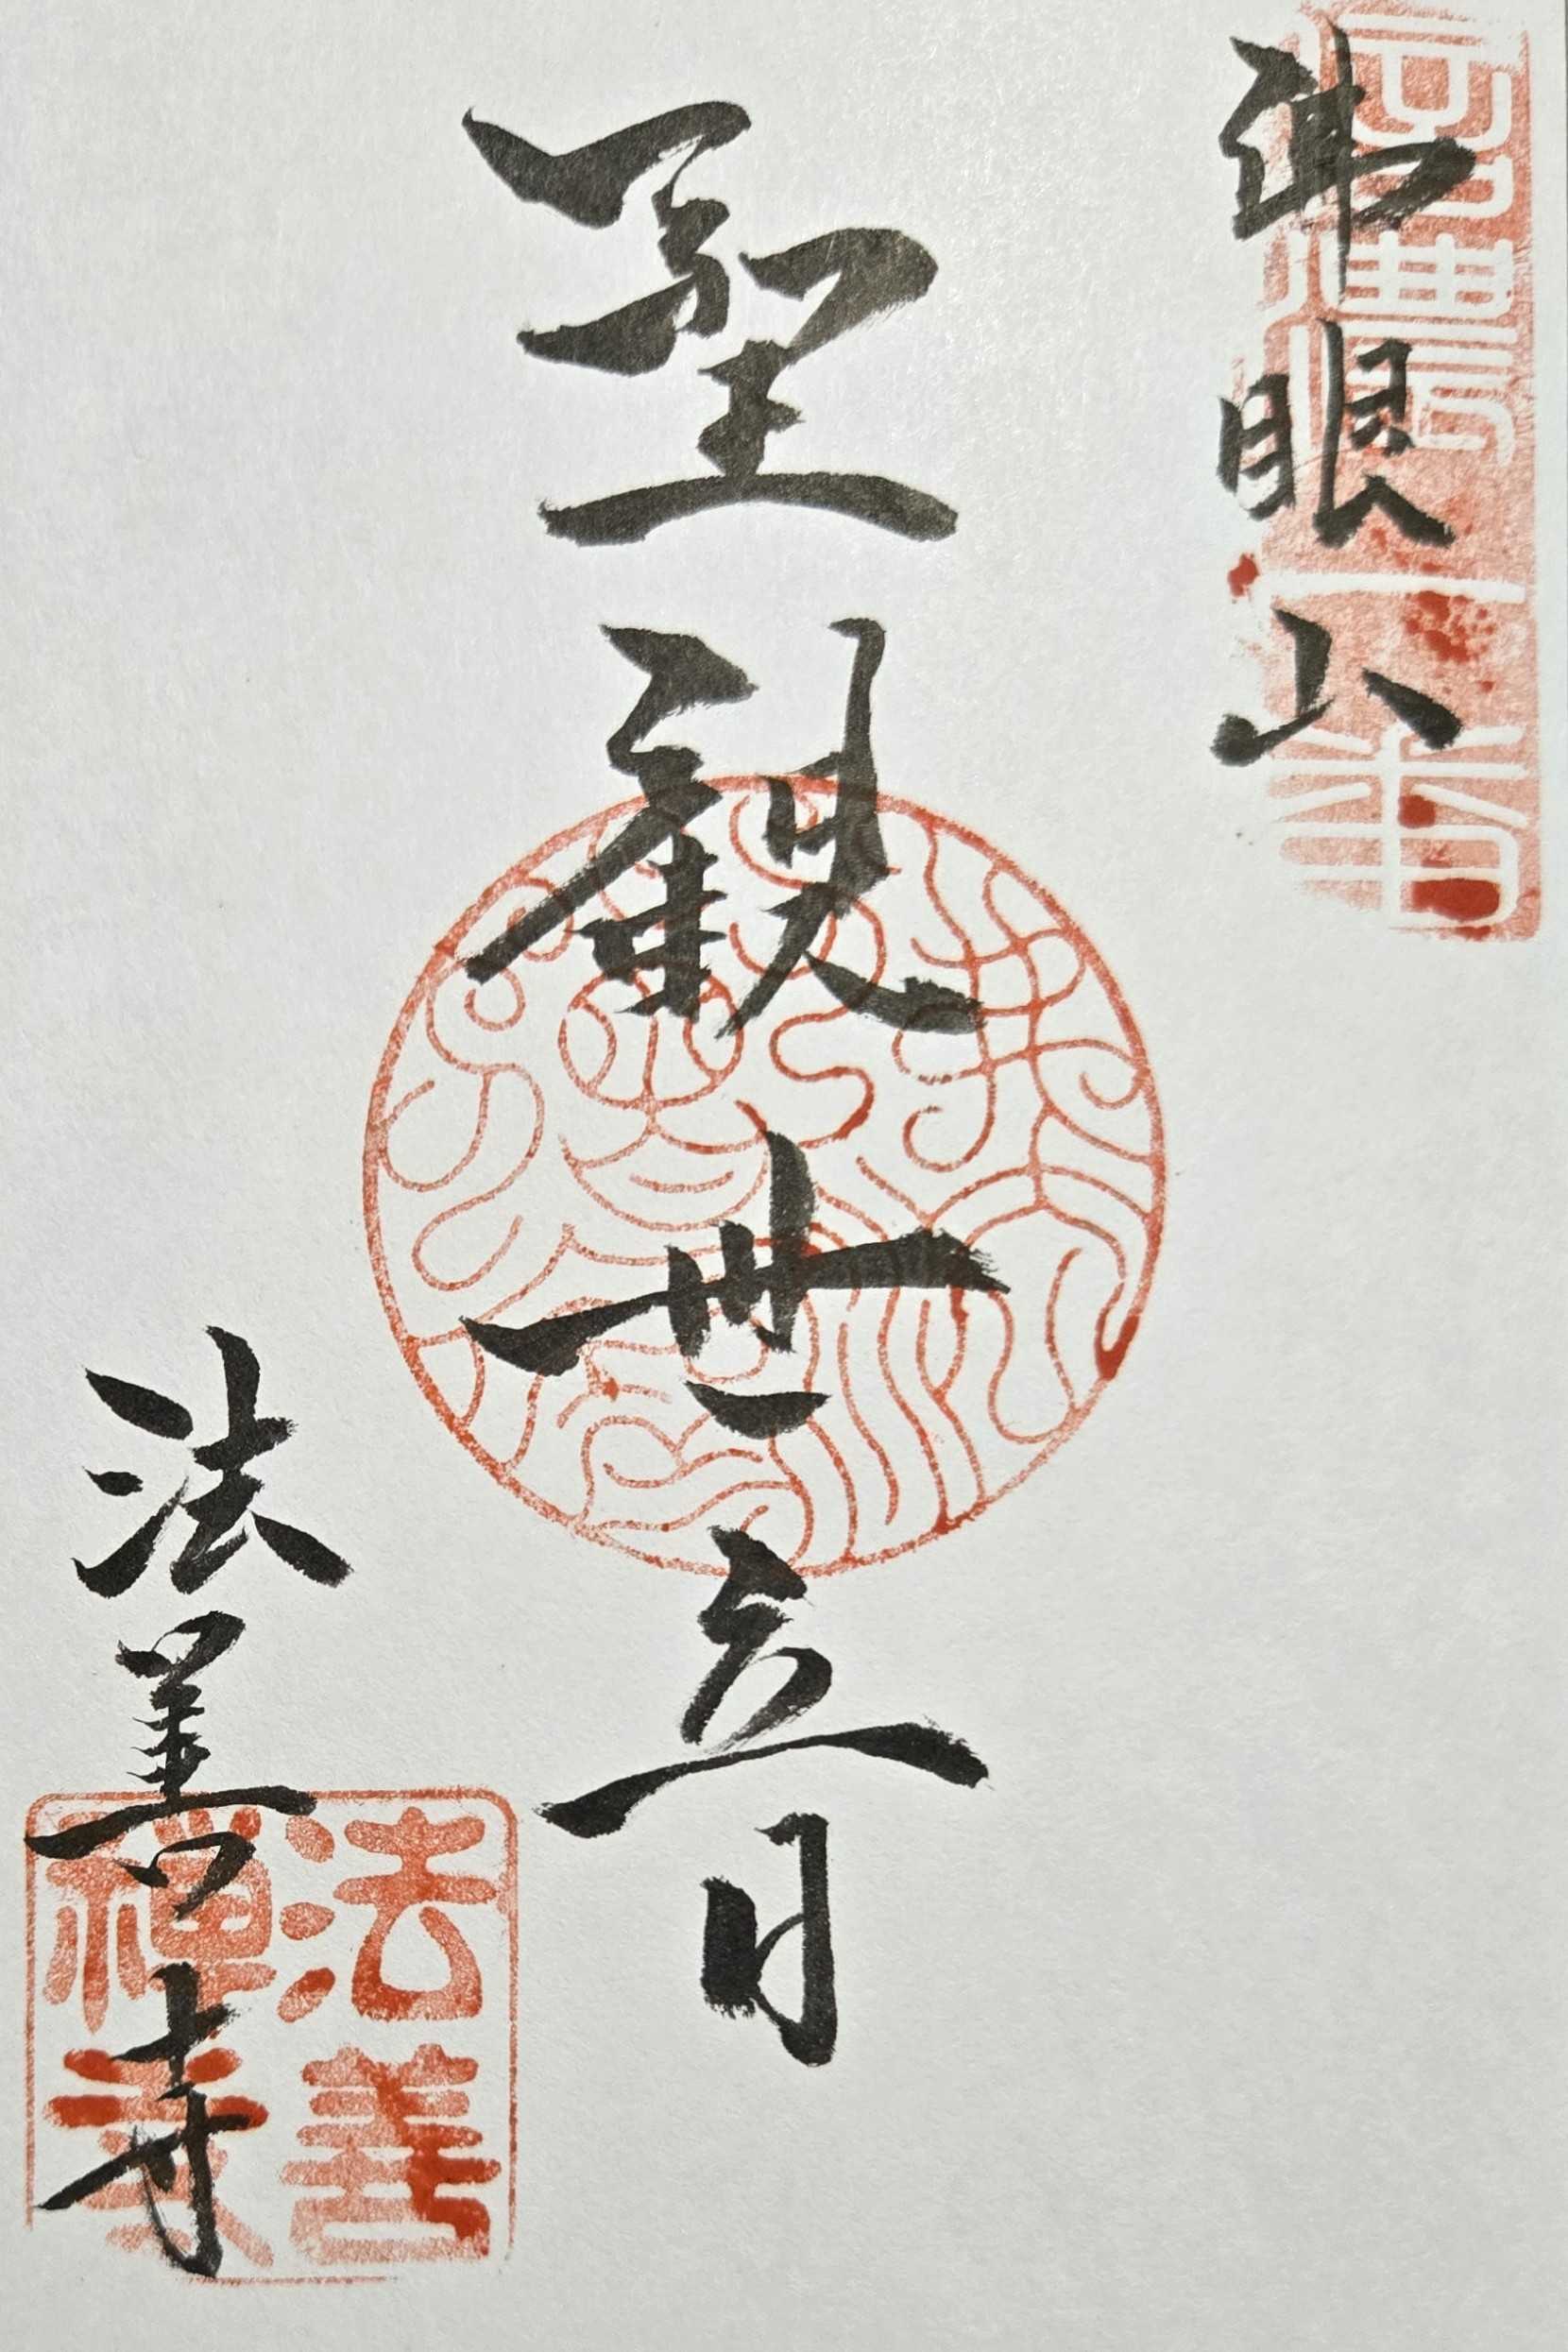 佛眼山
信濃十番
聖観世音
法善寺
法善
禅寺